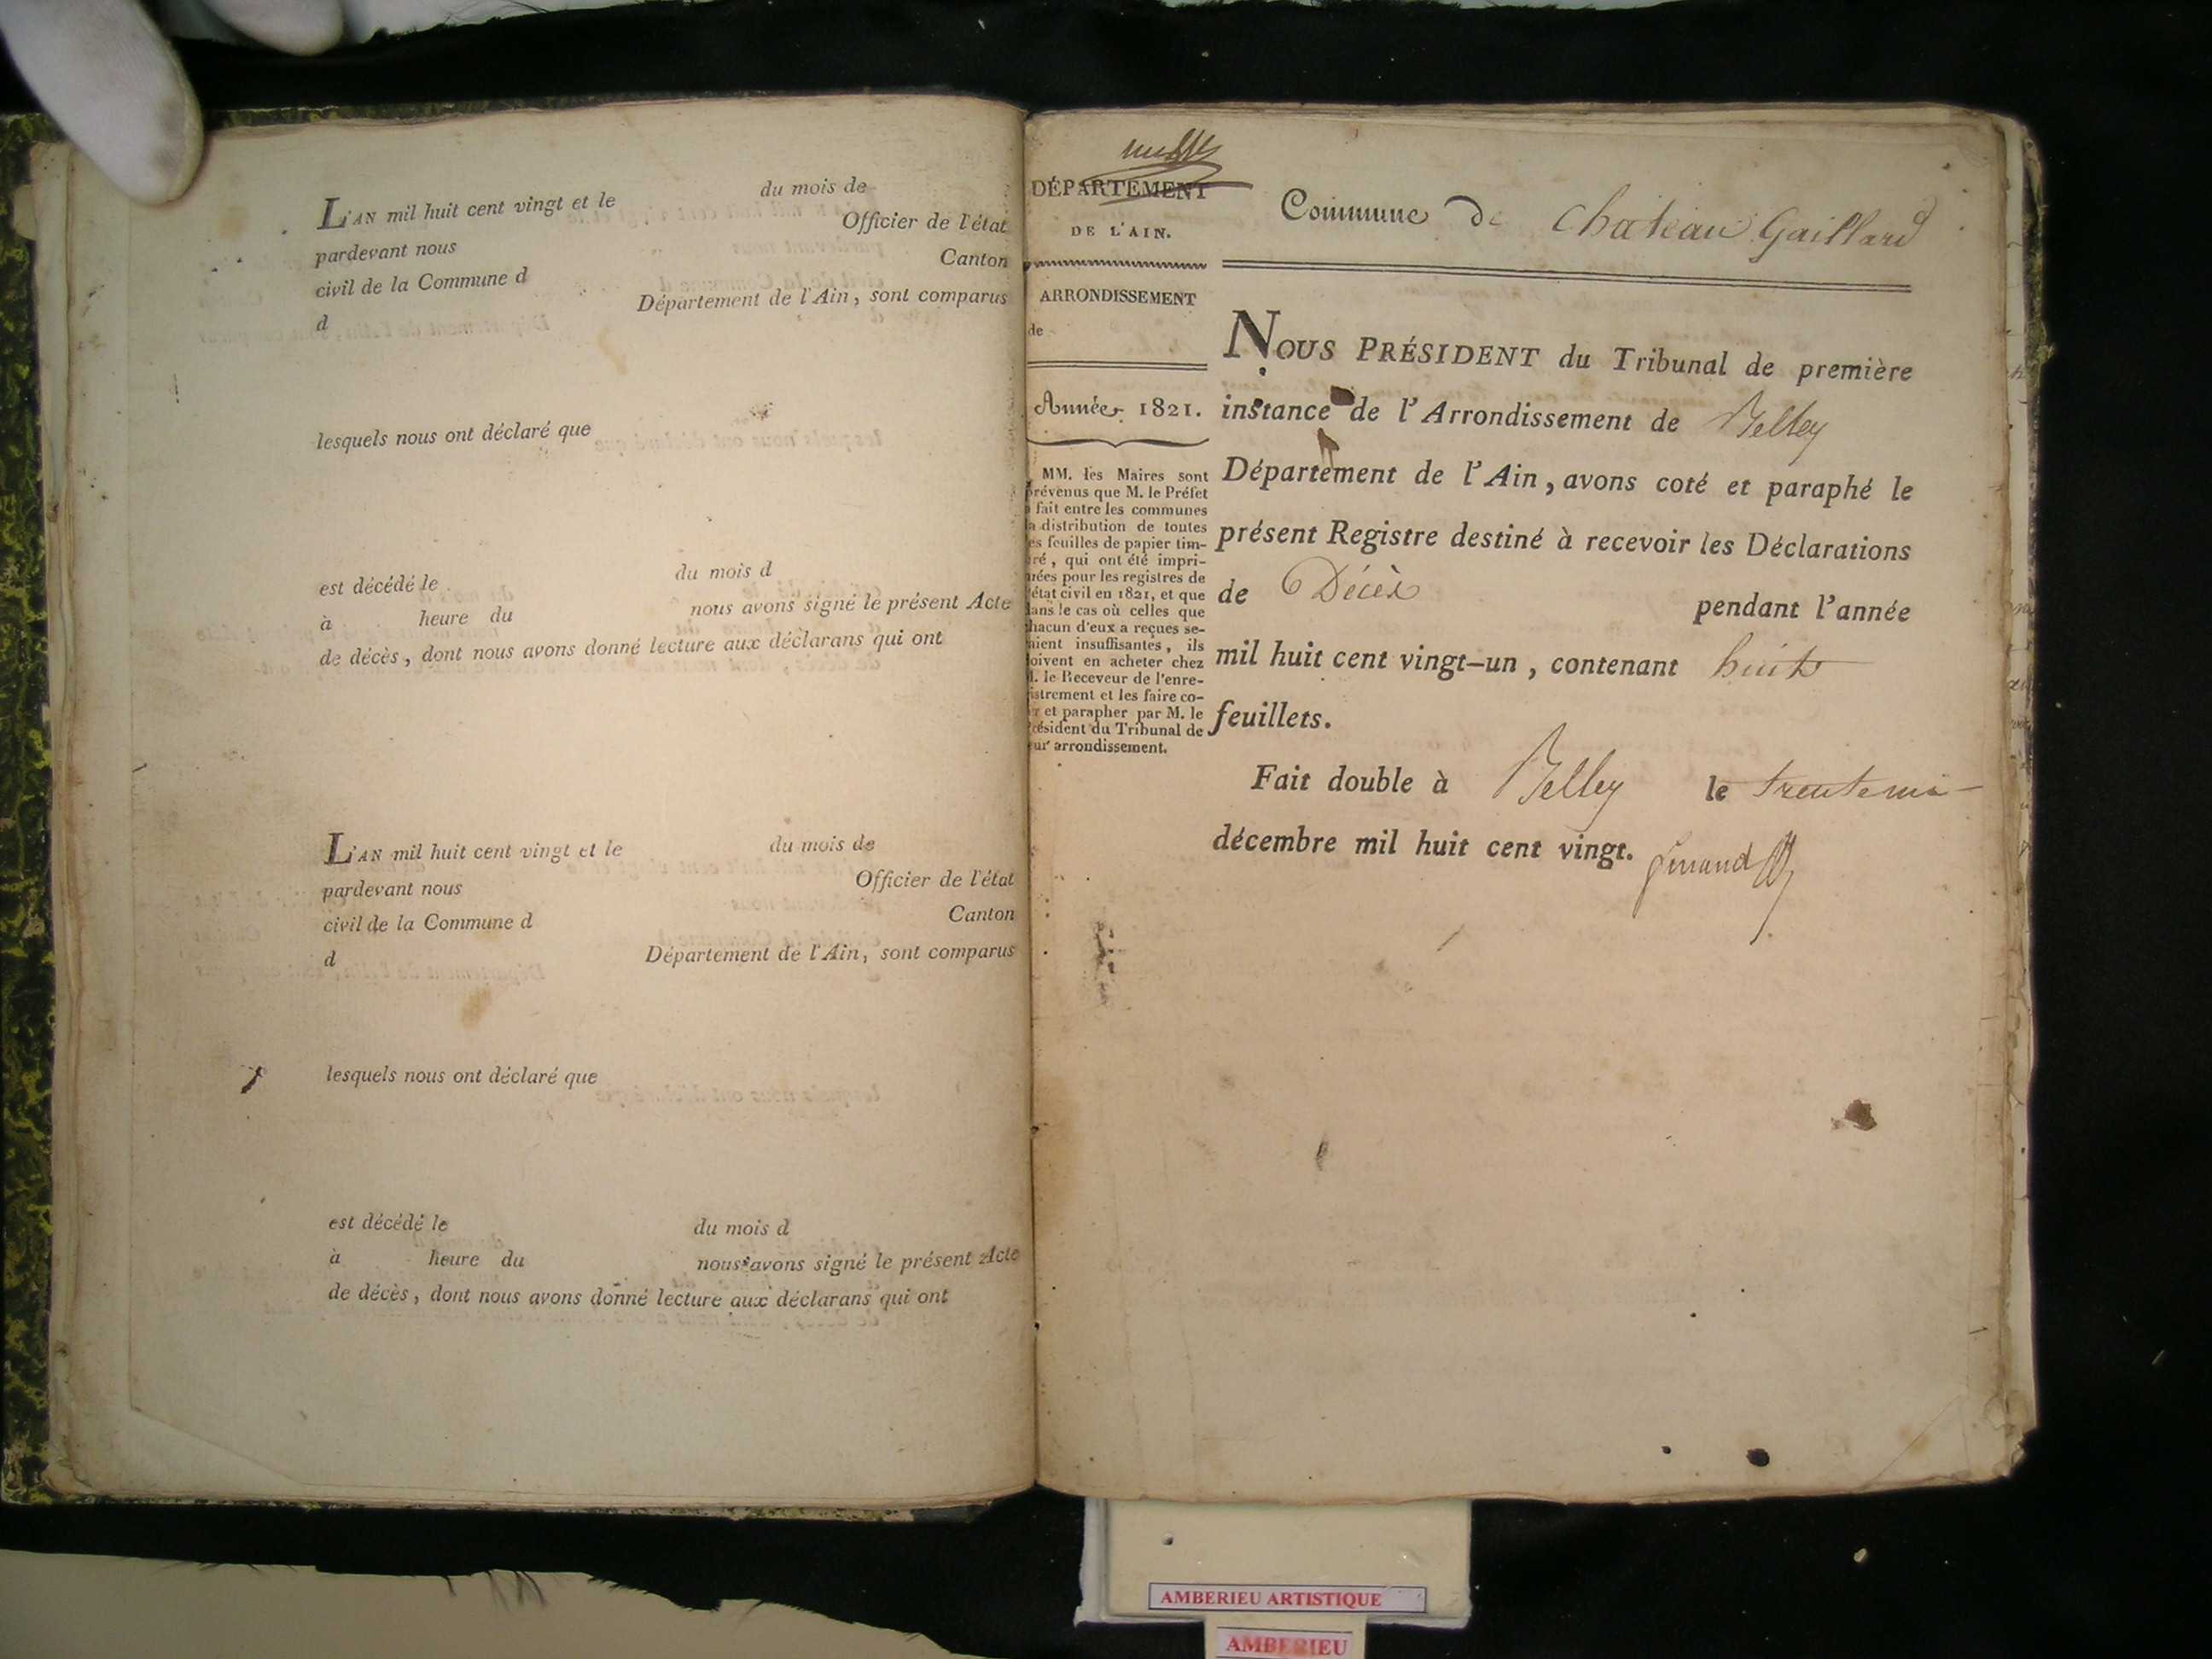 L'AN mil huit cent vingt et le du mois de
pardevant nous Officier de l'état
civil de la Commune d Canton
d Département de l'Ain, sont comparus
lesquels nous ont déclaré que
est décédé le du mois d
à heure du nous avons signé le présent Acte
de décès, dont nous avons donné lecture aux déclarans qui ont
L'AN mil huit cent vingt et le du mois de
pardevant nous Officier de l'état
civil de la Commune d Canton
d Département de l'Ain, sont comparus
lesquels nous ont déclaré que
est décédé le du mois d
à heure du nous avons signé le présent Acte
de décès, dont nous avons donné lecture aux déclarans qui ont
DÉPARTEMENT
DE L'AIN.
ARRONDISSEMENT
de
Année 1821.
MM. les Maires sont
prévenus que M. le Préfet
a fait entre les communes
la distribution de toutes
les feuilles de papier tim-
bré, qui ont été impri-
mées pour les registres de
l'état civil en 1821, et que
dans le cas où celles que
chacun d'eux a reçues se-
raient insuffisantes, ils
doivent en acheter chez
M. le Receveur de l'enre-
gistrement et les faire co-
ter et parapher par M. le
Président du Tribunal de
leur arrondissement.
Commune de Chateau Gaillard
NOUS PRÉSIDENT du Tribunal de première
instance de l'Arrondissement de Belley
Département de l'Ain, avons coté et paraphé le
présent Registre destiné à recevoir les Déclarations
de Décès pendant l'année
mil huit cent vingt-un, contenant huit
feuillets.
Fait double à Belley le
décembre mil huit cent vingt.
AMBERIEU ARTISTIQUE
AMBERIEU